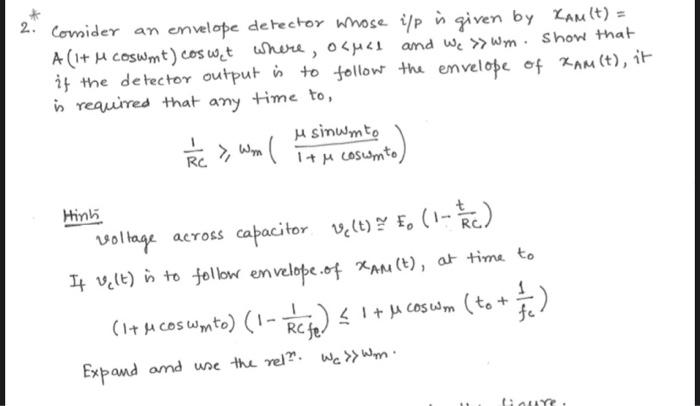 2.* Consider an envelope detector whose i/p is given by x_AM(t) =
A(1+ μ cosω_mt) cosω_ct where, 0<μ<1 and ω_c >> ω_m. Show that
if the detector output is to follow the envelope of x_AM(t), it
is required that any time to,
1/RC ≥ ω_m ( μ sinω_mt_0 / 1+ μ cosω_mt_0 )
Hint:
voltage across capacitor v_c(t) ≅ E_0 (1- t/RC)
If v_c(t) is to follow envelope of x_AM(t), at time to
(1+ μ cosω_mt_0) (1- 1/RCf_c) ≤ 1+ μ cosω_m (t_0 + 1/f_c)
Expand and use the rel^n. ω_c>>ω_m.
figure.